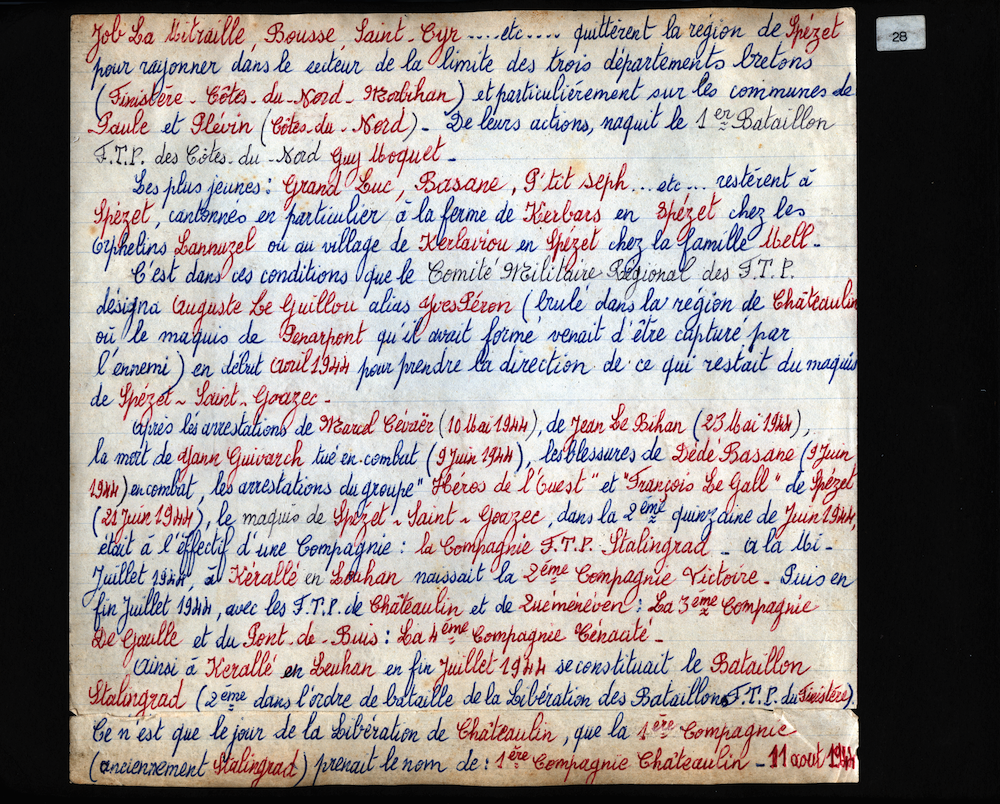 Job La Mitraille, Bousse, Saint-Cyr ....etc.... quittèrent la région de Spézet
pour rayonner dans le secteur de la limite des trois départements bretons
(Finistère - Côtes-du-Nord - Morbihan) et particulièrement sur les communes de
Paule et Plévin (Côtes-du-Nord) - De leurs actions, naquit le 1er Bataillon
F.T.P. des Côtes-du-Nord Guy Moquet -
Les plus jeunes : Grand Luc, Basane, P'tit seph...etc... restèrent à
Spézet, cantonnés en particulier à la ferme de Kerbars en Spézet chez les
Orphelins Lannuzel ou au village de Kerlaviou en Spézet chez la famille Mell -
C'est dans ces conditions que le Comité Militaire Régional des F.T.P.
désigna Auguste Le Guillou alias Yves Péron (brulé dans la région de Châteaulin
où le maquis de Penarpont qu'il avait formé venait d'être capturé par
l'ennemi) en début avril 1944 pour prendre la direction de ce qui restait du maquis
de Spézet - Saint-Goazec -
Après les arrestations de Marcel Cévaër (10 Mai 1944), de Jean Le Bihan (23 Mai 1944),
la mort de Yann Guivarch tué en combat (9 Juin 1944), les blessures de Dédé Basane (9 Juin
1944) en combat, les arrestations du groupe "Héros de l'Ouest" et "François Le Gall" de Spézet
(21 Juin 1944), le maquis de Spézet - Saint-Goazec, dans la 2ème quinzaine de Juin 1944,
était à l'éffectif d'une Compagnie : la Compagnie F.T.P. Stalingrad - A la Mi-
Juillet 1944, à Kérallé en Louhan naissait la 2ème Compagnie Victoire - Puis en
fin Juillet 1944, avec les F.T.P. de Châteaulin et de Quéménéven : La 3ème Compagnie
De Gaulle et du Pont-de-Buis : La 4ème Compagnie Ténacité -
Ainsi à Kerallé en Leuhan en fin Juillet 1944 se constituait le Bataillon
Stalingrad (2ème dans l'ordre de bataille de la Libération des Bataillons F.T.P. du Finistère).
Ce n'est que le jour de la Libération de Châteaulin, que la 1ère Compagnie
(anciennement Stalingrad) prenait le nom de : 1ère Compagnie Châteaulin - 11 août 1944
28